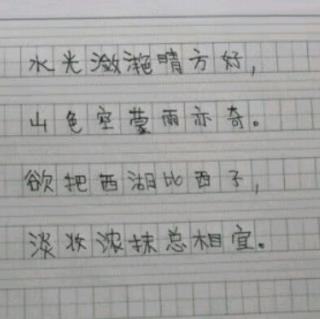 水光潋滟晴方好，
山色空蒙雨亦奇。
欲把西湖比西子，
淡妆浓抹总相宜。